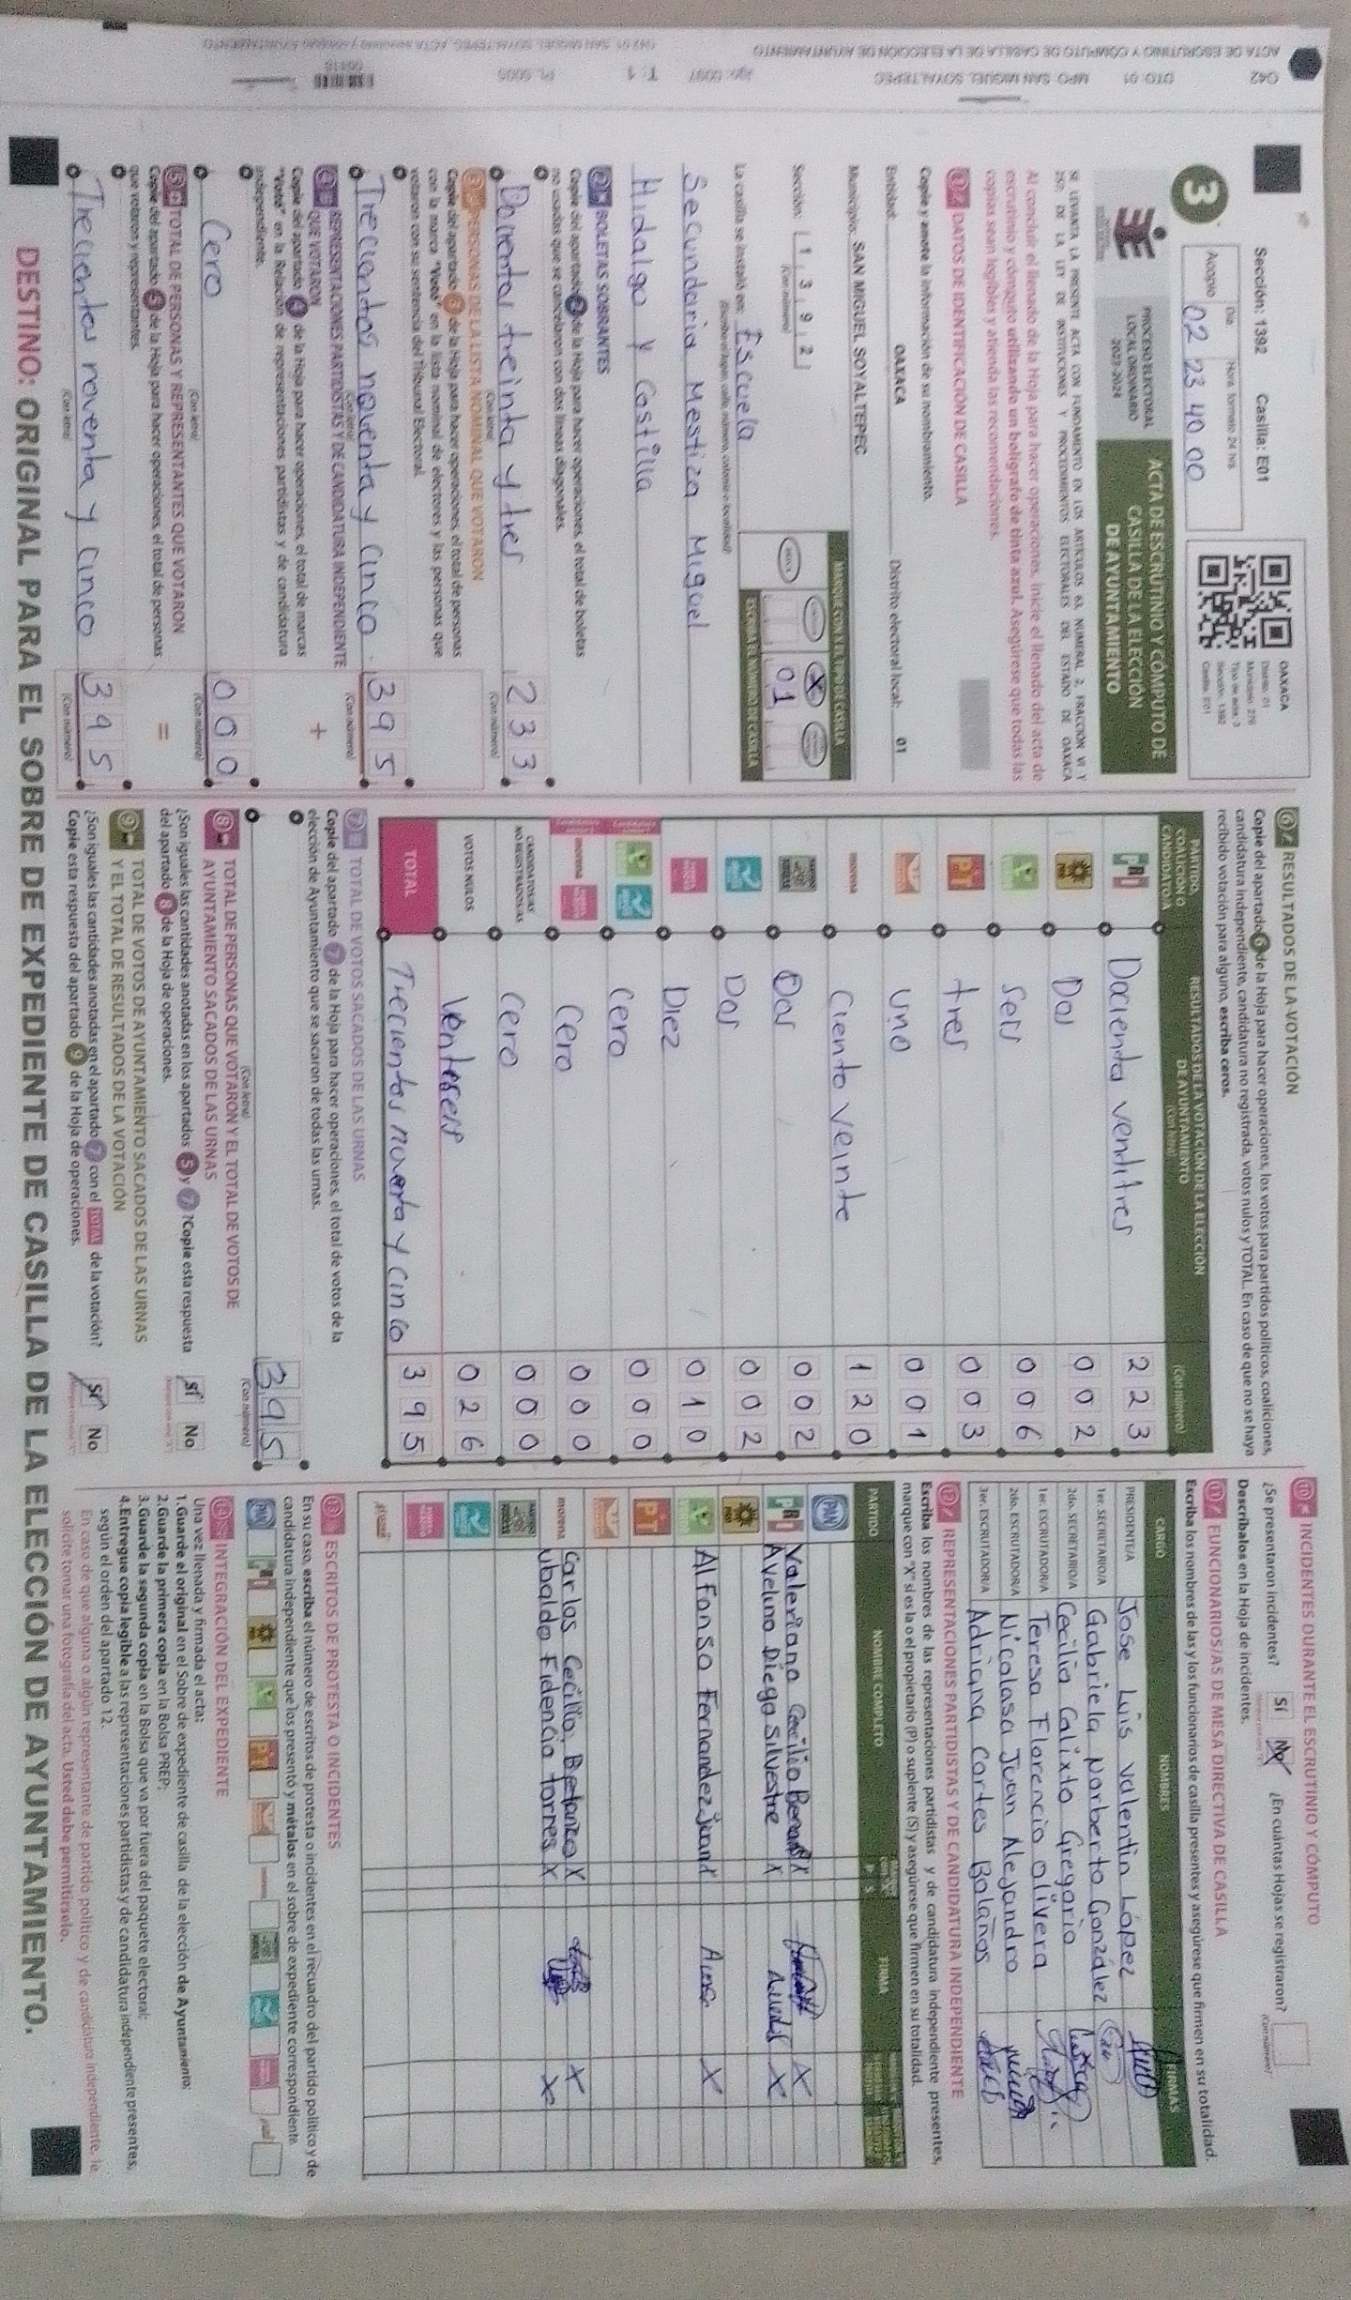 Sección: 1392 Casilla: E01
Día Hora, formato 24 hrs.
3
Acopio 02 23 40 00
OAXACA
Distrito: 01
Sección: 1392
Casilla: E01
PROCESO ELECTORAL
LOCAL ORDINARIO
2023-2024
ACTA DE ESCRUTINIO Y CÓMPUTO DE
CASILLA DE LA ELECCIÓN
DE AYUNTAMIENTO
SE LEVANTA LA PRESENTE ACTA CON FUNDAMENTO EN LOS ARTÍCULOS 63, NUMERAL 2, FRACCIÓN VI Y
DE LA LEY DE INSTITUCIONES Y PROCEDIMIENTOS ELECTORALES DEL ESTADO DE OAXACA
Al concluir el llenado de la Hoja para hacer operaciones, inicie el llenado del acta de
escrutinio y cómputo utilizando un bolígrafo de tinta azul. Asegúrese que todas las
copias sean legibles y atienda las recomendaciones.
1 DATOS DE IDENTIFICACIÓN DE CASILLA
Copie y anote la información de su nombramiento.
Entidad: OAXACA Distrito electoral local: 01
Municipio: SAN MIGUEL SOYALTEPEC
Sección: 1 3 9 2
(Con número)
MARQUE CON X EL TIPO DE CASILLA
X
01
ESCRIBA EL NÚMERO DE CASILLA
La casilla se instaló en: Escuela
(Escriba el lugar, calle, número, colonia o localidad)
Secundaria Mestiza Miguel
Hidalgo y Costilla
2 BOLETAS SOBRANTES
Copie del apartado 2 de la Hoja para hacer operaciones, el total de boletas
no usadas que se cancelaron con dos líneas diagonales.
Docientos treinta y tres 233
(Con letra) (Con número)
3 PERSONAS DE LA LISTA NOMINAL QUE VOTARON
Copie del apartado 3 de la Hoja para hacer operaciones, el total de personas
con la marca "Votó" en la lista nominal de electores y las personas que
votaron con su sentencia del Tribunal Electoral.
Trecientos noventa y cinco. 395
(Con letra) (Con número)
4 REPRESENTACIONES PARTIDISTAS Y DE CANDIDATURA INDEPENDIENTE
QUE VOTARON +
Copie del apartado 4 de la Hoja para hacer operaciones, el total de marcas
"Votó" en la Relación de representaciones partidistas y de candidatura
independiente.
Cero 000
(Con letra) (Con número)
5 TOTAL DE PERSONAS Y REPRESENTANTES QUE VOTARON
Copie del apartado 5 de la Hoja para hacer operaciones, el total de personas =
que votaron y representantes.
Trecientos noventa y cinco 395
(Con letra) (Con número)
6 RESULTADOS DE LA VOTACIÓN
Copie del apartado 6 de la Hoja para hacer operaciones, los votos para partidos políticos, coaliciones,
candidatura independiente, candidatura no registrada, votos nulos y TOTAL. En caso de que no se haya
recibido votación para alguno, escriba ceros.
PARTIDO, COALICIÓN O CANDIDATO/A
RESULTADOS DE LA VOTACIÓN DE LA ELECCIÓN
DE AYUNTAMIENTO
(Con letra) (Con número)
PRI Docienta ventitres 223
PRD Dos 002
Seis 006
PT tres 003
uno 001
morena Ciento veinte 120
Dos 002
Dos 002
Diez 010
Cero 000
morena Cero 000
CANDIDATOS/AS NO REGISTRADOS/AS Cero 000
VOTOS NULOS Venteseis 026
TOTAL Trecientos noventa y cinco 395
7 TOTAL DE VOTOS SACADOS DE LAS URNAS
Copie del apartado 7 de la Hoja para hacer operaciones, el total de votos de la
elección de Ayuntamiento que se sacaron de todas las urnas.
395
(Con letra) (Con número)
8 TOTAL DE PERSONAS QUE VOTARON Y EL TOTAL DE VOTOS DE
AYUNTAMIENTO SACADOS DE LAS URNAS
¿Son iguales las cantidades anotadas en los apartados 5 y 7? Copie esta respuesta
del apartado 8 de la Hoja de operaciones. Sí No
9 TOTAL DE VOTOS DE AYUNTAMIENTO SACADOS DE LAS URNAS
Y EL TOTAL DE RESULTADOS DE LA VOTACIÓN
¿Son iguales las cantidades anotadas en el apartado 7 con el TOTAL de la votación?
Copie esta respuesta del apartado 9 de la Hoja de operaciones. Sí No
10 INCIDENTES DURANTE EL ESCRUTINIO Y CÓMPUTO
¿Se presentaron incidentes? Sí No ¿En cuántas Hojas se registraron?
(Con número)
Descríbalos en la Hoja de incidentes.
11 FUNCIONARIOS/AS DE MESA DIRECTIVA DE CASILLA
Escriba los nombres de las y los funcionarios de casilla presentes y asegúrese que firmen en su totalidad.
CARGO NOMBRES FIRMAS
PRESIDENTE/A Jose Luis valentin López
1er. SECRETARIO/A Gabriela Norberto González
2do. SECRETARIO/A Cecilia Calixto Gregorio
1er. ESCRUTADOR/A Teresa Florencio olivera
2do. ESCRUTADOR/A Nicolasa Juan Alejandro
3er. ESCRUTADOR/A Adriana Cortes Bolaños
12 REPRESENTACIONES PARTIDISTAS Y DE CANDIDATURA INDEPENDIENTE
Escriba los nombres de las representaciones partidistas y de candidatura independiente presentes,
marque con "X" si es la o el propietario (P) o suplente (S) y asegúrese que firmen en su totalidad.
PARTIDO NOMBRE COMPLETO P S FIRMA
PAN
PRI Valeriano Cecilio X X
Avelino Diego Silvestre X X
PRD
Alfonso Fernandez Juan X X
PT
morena Carlos Cecilio Betanzo X X
Ubaldo Fidencio Torres X X
13 ESCRITOS DE PROTESTA O INCIDENTES
En su caso, escriba el número de escritos de protesta o incidentes en el recuadro del partido político y de
candidatura independiente que los presentó y métalos en el sobre de expediente correspondiente.
PAN PRI PRD PT
14 INTEGRACIÓN DEL EXPEDIENTE
Una vez llenada y firmada el acta:
1.Guarde el original en el Sobre de expediente de casilla de la elección de Ayuntamiento;
2.Guarde la primera copia en la Bolsa PREP;
3.Guarde la segunda copia en la Bolsa que va por fuera del paquete electoral;
4.Entregue copia legible a las representaciones partidistas y de candidatura independiente presentes,
según el orden del apartado 12.
En caso de que alguna o algún representante de partido político y de candidatura independiente, le
solicite tomar una fotografía del acta, Usted debe permitírselo.
DESTINO: ORIGINAL PARA EL SOBRE DE EXPEDIENTE DE CASILLA DE LA ELECCIÓN DE AYUNTAMIENTO.
042 DTO: 01 MPO: SAN MIGUEL SOYALTEPEC
ACTA DE ESCRUTINIO Y CÓMPUTO DE CASILLA DE LA ELECCIÓN DE AYUNTAMIENTO